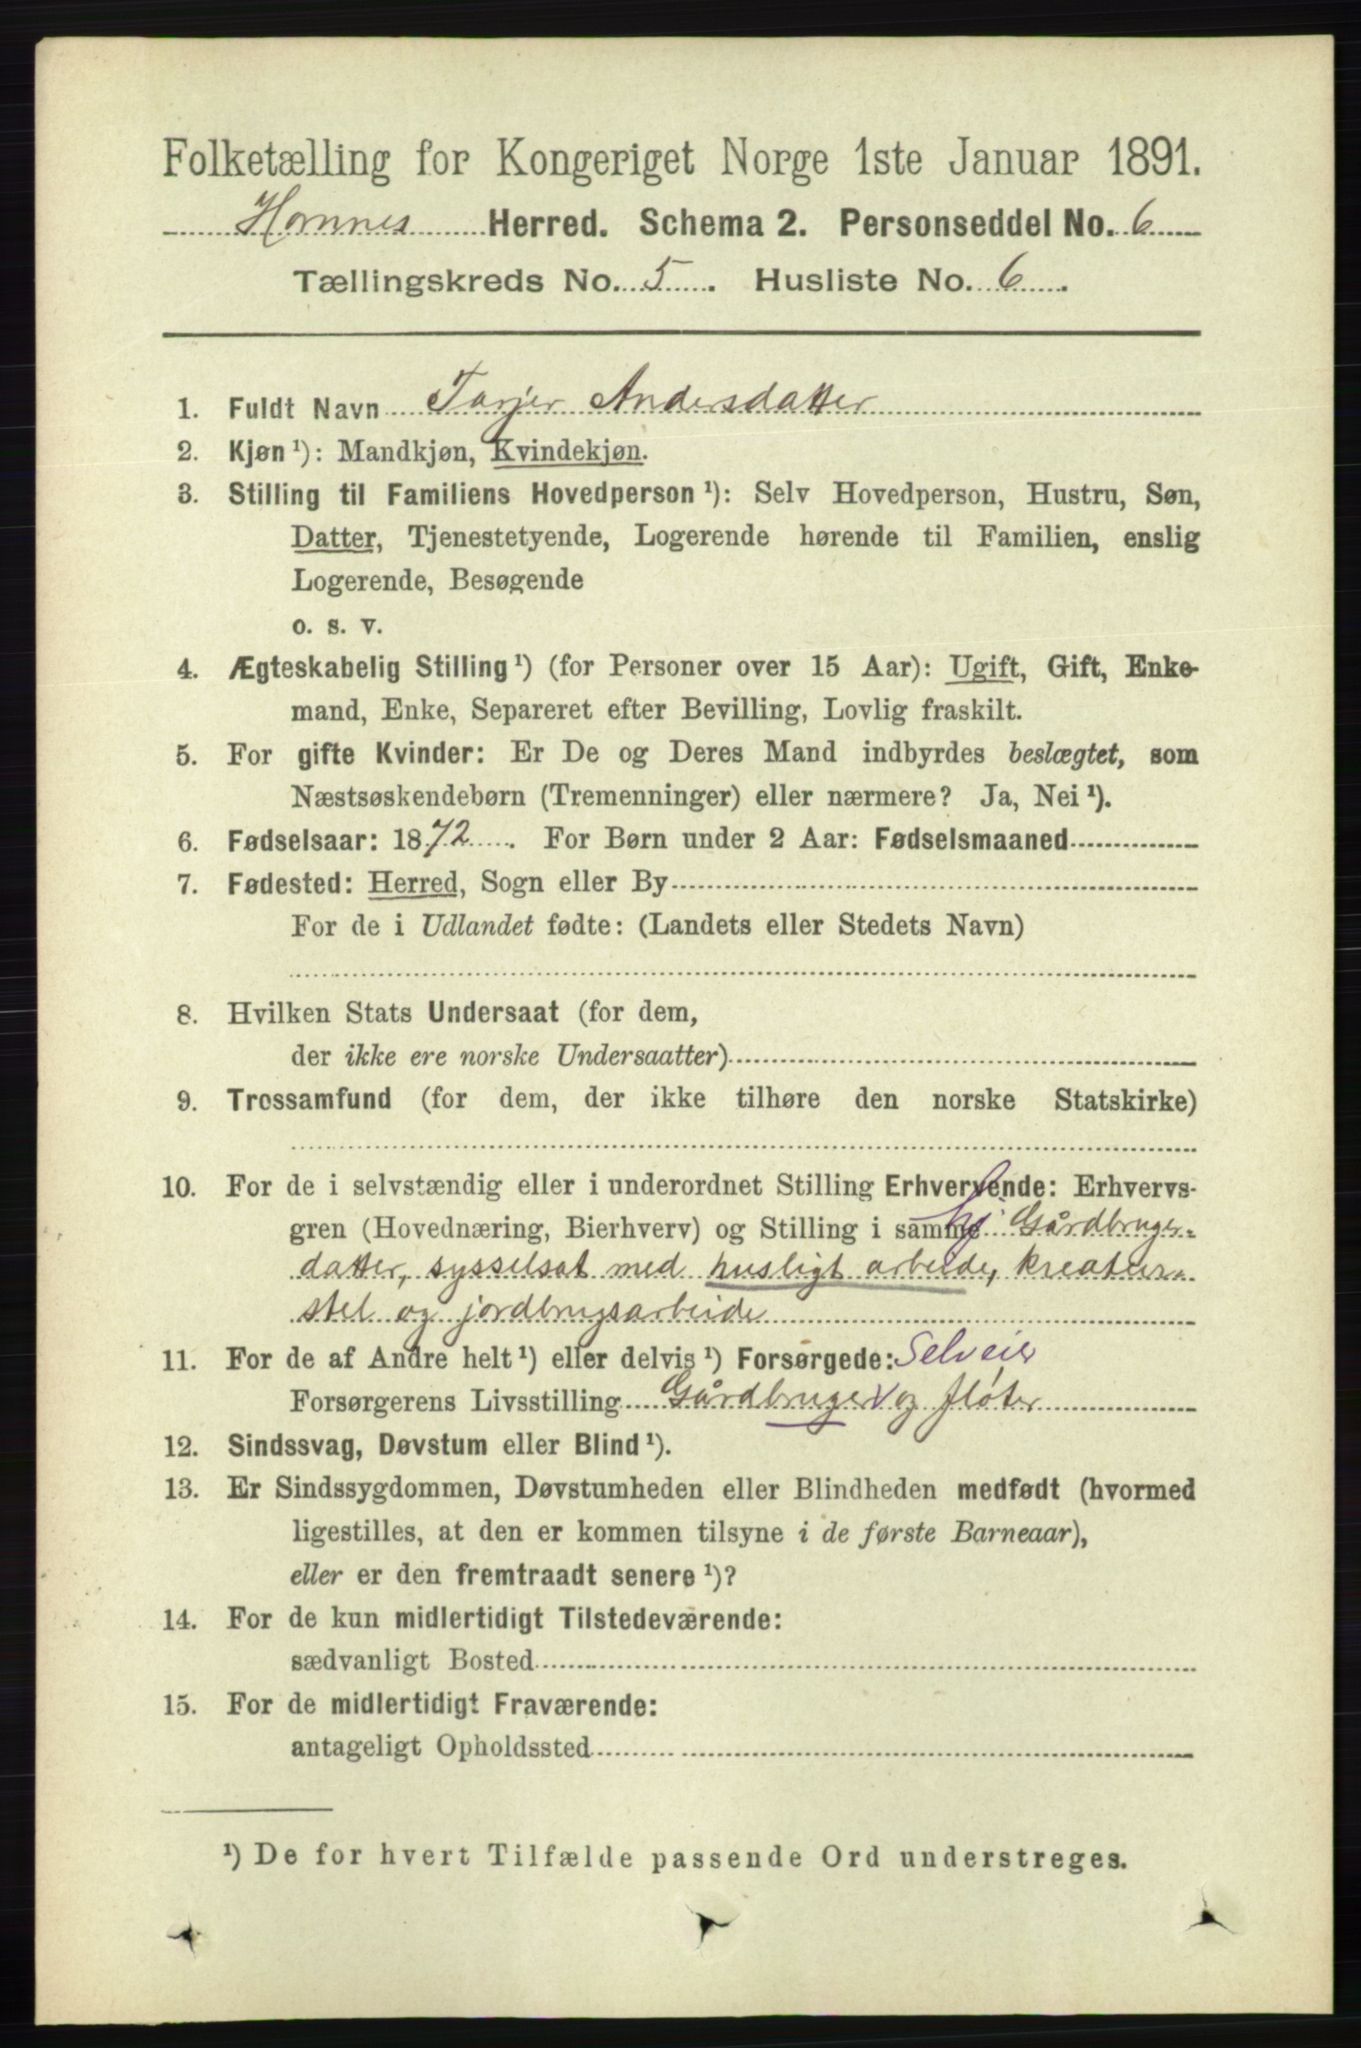 Folketælling for Kongeriget Norge 1ste Januar 1891.
Hornnes Herred. Schema 2. Personseddel No. 6
Tællingskreds No. 5. Husliste No. 6.
1. Fuldt Navn Tarjer Andersdatter
2. Kjøn ¹): Mandkjøn, Kvindekjøn.
3. Stilling til Familiens Hovedperson ¹): Selv Hovedperson, Hustru, Søn,
Datter, Tjenestetyende, Logerende hørende til Familien, enslig
Logerende, Besøgende
o. s. v.
4. Ægteskabelig Stilling ¹) (for Personer over 15 Aar): Ugift, Gift, Enke-
mand, Enke, Separeret efter Bevilling, Lovlig fraskilt.
5. For gifte Kvinder: Er De og Deres Mand indbyrdes beslægtet, som
Næstsøskendebørn (Tremenninger) eller nærmere? Ja, Nei ¹).
6. Fødselsaar: 1872. For Børn under 2 Aar: Fødselsmaaned
7. Fødested: Herred, Sogn eller By
For de i Udlandet fødte: (Landets eller Stedets Navn)
8. Hvilken Stats Undersaat (for dem,
der ikke ere norske Undersaatter)
9. Trossamfund (for dem, der ikke tilhøre den norske Statskirke)
10. For de i selvstændig eller i underordnet Stilling Erhvervende: Erhvervs-
gren (Hovednæring, Bierhverv) og Stilling i samme Gårdbruger-
datter, sysselsat med husligt arbeide, kreatur-
stel og jordbrugsarbeide
11. For de af Andre helt ¹) eller delvis ¹) Forsørgede: Selveier
Forsørgerens Livsstilling Gårdbruger og fløter
12. Sindssvag, Døvstum eller Blind ¹).
13. Er Sindssygdommen, Døvstumheden eller Blindheden medfødt (hvormed
ligestilles, at den er kommen tilsyne i de første Barneaar),
eller er den fremtraadt senere ¹)?
14. For de kun midlertidigt Tilstedeværende:
sædvanligt Bosted
15. For de midlertidigt Fraværende:
antageligt Opholdssted
¹) De for hvert Tilfælde passende Ord understreges.